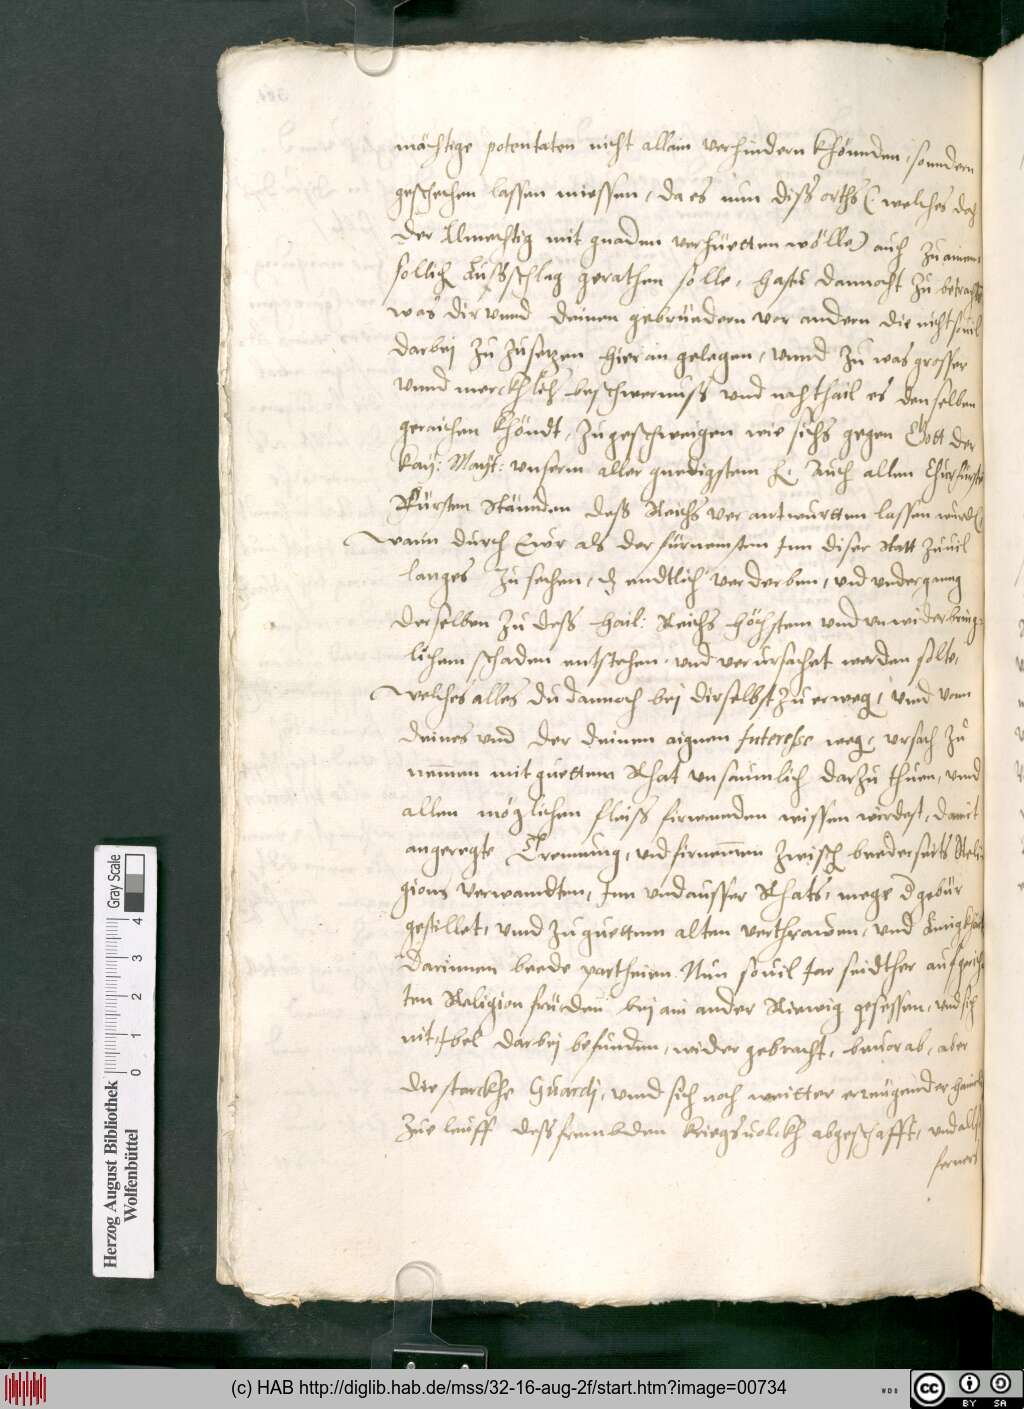 mächtige potentaten nicht allain verhindern khönnden, sonndern
geschehen lassen miessen, da es nun diß orths (: welches doch
der Allmechtig mit gnaden verhüetten wölle) auch zu ainem
sollich Außschlag gerathen solle, hastu dannocht zu betracht
was dir vnnd deinen gebrüedern vor andern die nicht souil
darbei zu zusetzen hieran gelegen, vnnd zu was grosser
vnnd merckhlich beschwernuß vnd nachthail es denselben
geraichen khöndt, zugeschweigen wie sichs gegen Gott der
Kay: Mayt: vnserm aller gnedigstem h. Auch allen Churfürst
Fürsten Stännden deß Reichs verantwurtten lassen wurd
wann durch Ewr als der fürnemsten Inn diser Statt zuuil
langes zusehen, dz endtlich verderben, vnd vndergang
derselben zu deß hail: Reichs höchstem vnd vnwiderbring-
lichem schaden entstehen, vnd verursachet werden solte,
welches alles du dannoch bei dir selbst zu erweg, vnd vonn
deines vnd der deinen aignen Interesse weg, vrsach zu
nemmen mit guettem Rhat vnsaumlich darzu thuen, vnnd
allen möglichen fleiß firwennden wissen wirdest, damit
angeregte Trennung, vnd firnemmen zwisch beederseits Reli
gions verwandten, Inn vnd ausser Rhats, wege d gebür
gestillet, vnnd zu guettem alten verthrawen, vnd Ainigkhait
darinnen beede partheien Nun souil Jar seidther aufgerich
ten Religion friden bei ain ander Riewig gesessen, vnd sich
nit Ibel darbei befunden, wider gebracht, beuorab, aber
die starckhe Guardj, vnnd sich noch weitter erzaigender haimb
zue lauff deß frembden kriegsuolckh abgeschafft, vnd alls
ferner
Herzog August Bibliothek
Wolfenbüttel
0 1 2 3 4
Gray Scale
(c) HAB http://diglib.hab.de/mss/32-16-aug-2f/start.htm?image=00734
WDB
CC BY SA